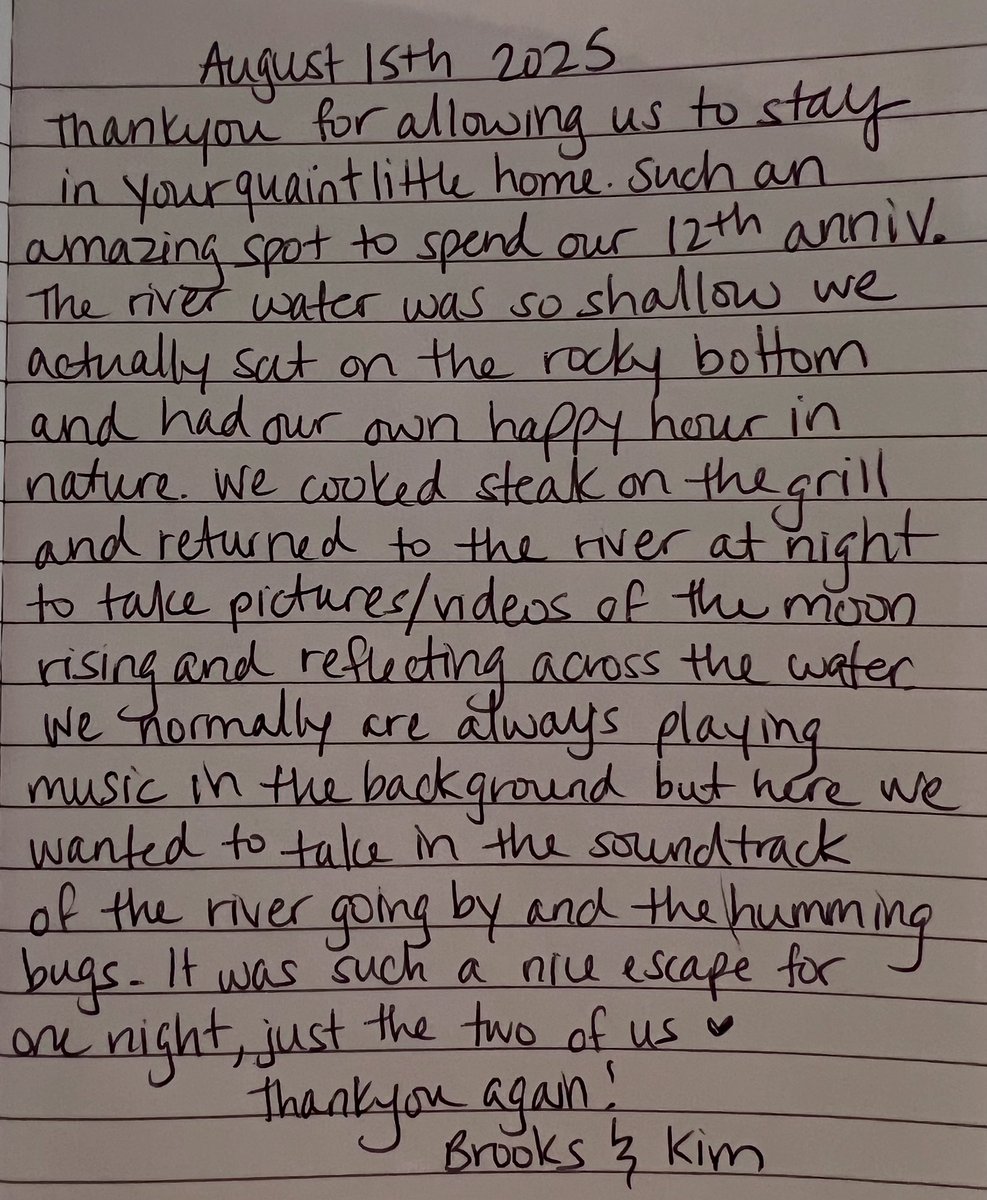 August 15th 2025
Thankyou for allowing us to stay
in your quaint little home. Such an
amazing spot to spend our 12th anniv.
The river water was so shallow we
actually sat on the rocky bottom
and had our own happy hour in
nature. We cooked steak on the grill
and returned to the river at night
to take pictures/videos of the moon
rising and reflecting across the water.
We normally are always playing
music in the background but here we
wanted to take in the soundtrack
of the river going by and the humming
bugs. It was such a nice escape for
one night, just the two of us ♥
Thankyou again!
Brooks & Kim